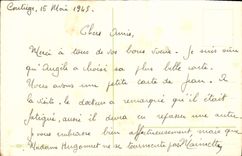 15 Mai 1945.
Chers Amis,
Merci à tous de vos bons vœux. Je suis sûre
qu'Angèle a choisi sa plus belle carte.
Nous avons une petite carte de Jean. A
la visite, le docteur a remarqué qu'il était
fatigué, aussi il devra en refaire une autre.
Je vous embrasse bien affectueusement, mais que
Madame Hugonnet ne se tourmente pas